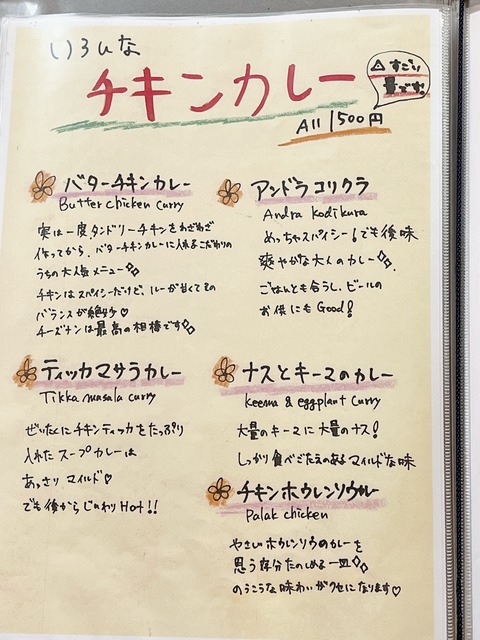 いろいな
チキンカレー
△すごい
量です!
All 1500円
バターチキンカレー
Butter chicken curry
実は一度、タンドリーチキンをわざわざ
作ってから、バターチキンカレーに入れるこだわりの
うちの大人気メニュー
チキンはスパイシーだけど、ルーが甘くてその
バランスが絶妙♡
チーズナンは最高の相棒です
アンドラコリクラ
Andra Kodikura
めっちゃスパイシー!でも後味
爽やかな大人のカレー
ごはんとも合うし、ビールの
お供にもGood!
ティッカマサラカレー
Tikka masala curry
ぜいたくにチキンティッカをたっぷり
入れたスープカレーは
あっさりマイルド♡
でも後からじわりHot!!
ナスとキーマのカレー
keema & eggplant curry
大量のキーマに大量のナス!
しっかり食べごたえのあるマイルドな味
チキンホウレンソウカレー
Palak chicken
やさしいホウレンソウのカレーを
思う存分たのしめる一皿
のうこうな味わいがクセになります♡